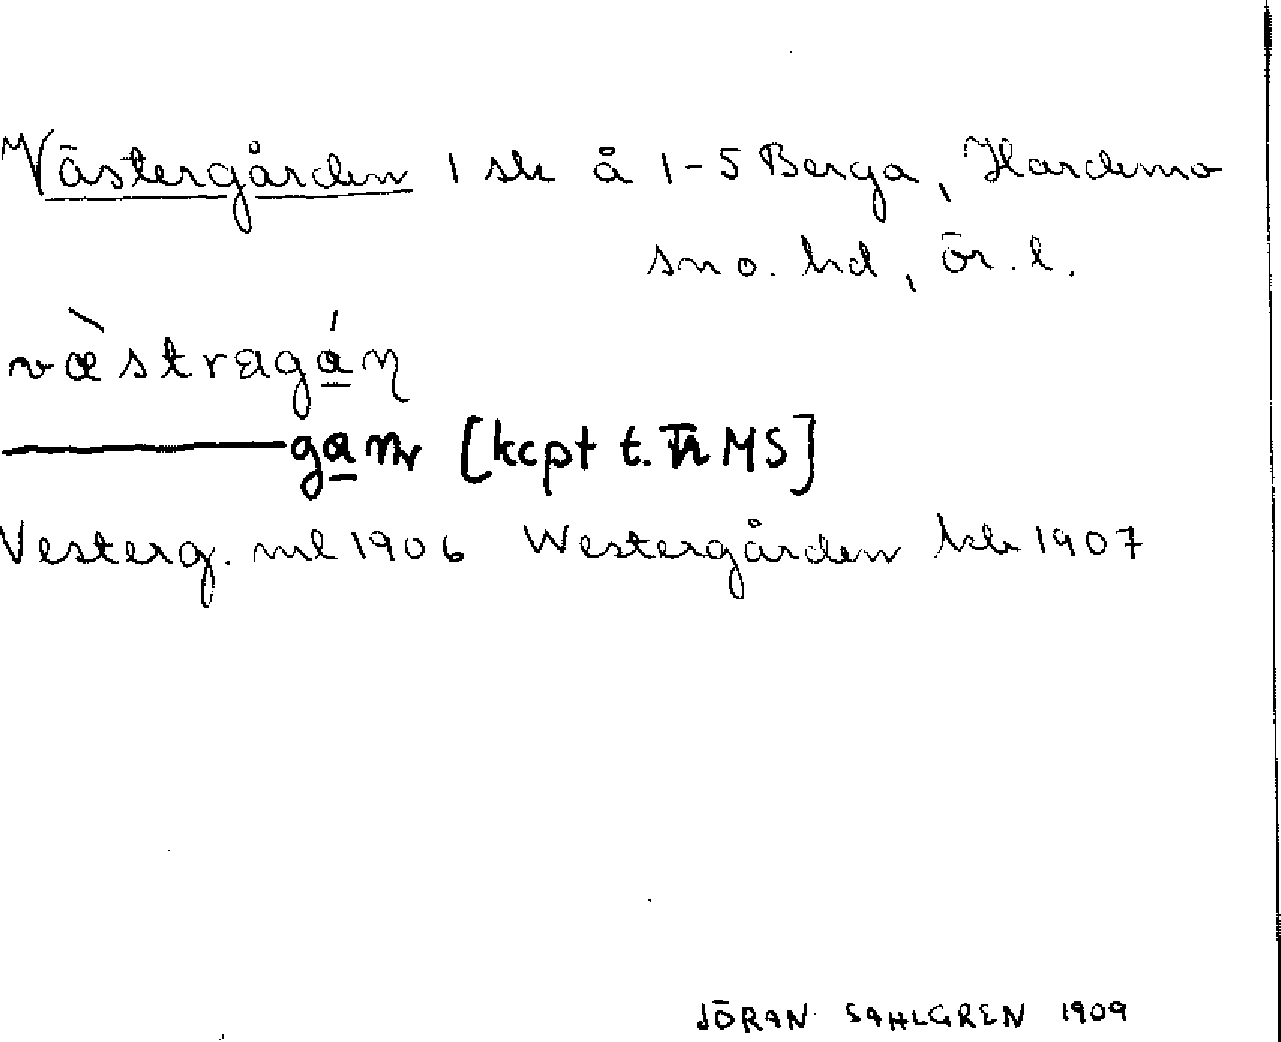 Västergården 1 sk å 1-5 Berga, Hardemo
sn o. hd, Ör. l.
væ̀stragán
gan [kcpt t. MS]
Vesterg. ml 1906 Westergården kb 1907
JÖRAN SAHLGREN 1909